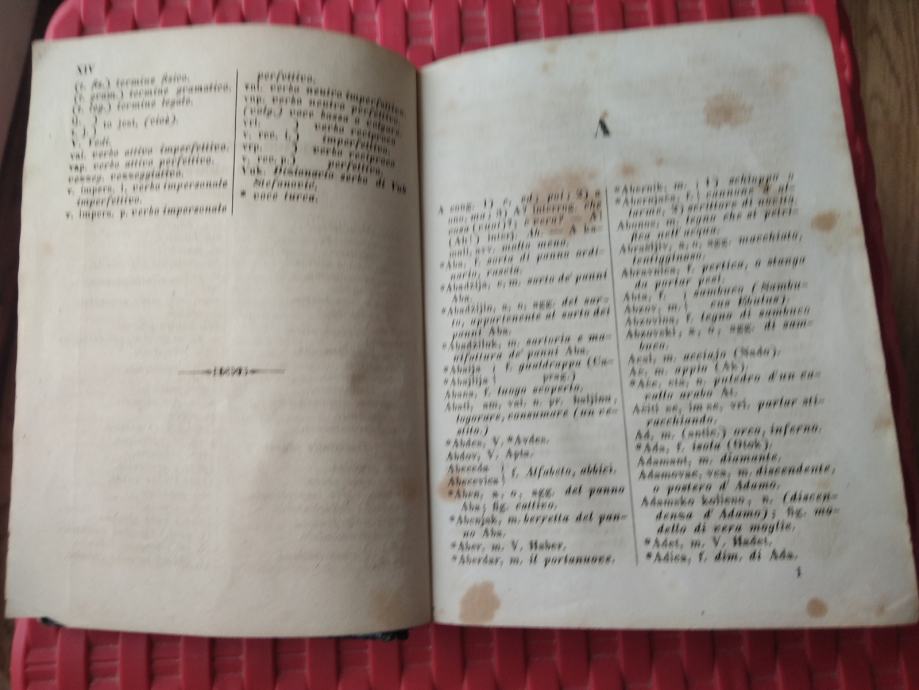 XIV
(t. fis.) termine fisico.
(t. gram.) termine gramatico.
(t. leg.) termine legale.
to jest, (cioè).
V. Vedi.
vai. verbo attivo imperfettivo.
vap. verbo attivo perfettivo.
vezzeg. vezzeggiativo.
v. impers. i. verbo impersonale
imperfettivo.
v. impers. p. verbo impersonale
perfettivo.
vni. verbo neutro imperfettivo.
vnp. verbo neutro perfettivo.
(volg.) voce bassa o volgare.
vri.
v. rec. i. } verbo reciproco
imperfettivo.
vrp.
v. rec. p. } verbo reciproco
perfettivo.
Vuk. Dizionario serbo di Vuk
Stefanović.
* voce turca.
A
A cong. 1) e, ed; poi; 2) a
uno, ma; 3) A? interrog. che
cosa (cusa)?; è vero? — A!
(Ah!) interj. Ah. — A ka-
moli, avv. molto meno.
*Aba, f. sorta di panno ordi-
nario, rascia.
*Abadžija, e, m. sarto de' panni
Aba.
*Abadžijin, a, o, agg. del sar-
to, appartenente al sarto dei
panni Aba.
*Abadžiluk, m. sartoria e ma-
nifattura de' panni Aba.
*Abaija } f. gualdrappa (Ca-
*Abajlija } prag.)
Abana, f. luogo scoperto.
Abati, am, vai. n. pr. haljinu,
logorare, consumare (un ve-
stito.)
*Abdes, V. *Avdes.
Abdov, V. Apta.
Abeceda
Abecevica } f. Alfabeto, abbici.
*Aben, a, o, agg. del panno
Aba; fig. cattivo.
*Abenjak, m. berretta del pan-
no Aba.
*Aber, m. V. Haber.
*Aberdar, m. il portanuove.
*Abernik, m. } 1) schioppo o
*Abernjača, f. } cannone d'al-
larme, 2) scrittore di novità.
Abonos, m. legno che si petri-
fica nell' acqua.
Abrašljiv, a, o, agg. macchiato,
lentigginoso.
Abravnica, f. pertica, o stanga
da portar pesi.
Abta, f. } sambuco (Sambu-
Abzov, m. } cus Ebulus).
Abzovina, f. legno di sambuco
Abzovski, a, o, agg. di sam-
buco.
Acal, m. acciajo (Nado).
Ač, m. appio (Ak).
*Ače, eta, n. puledro d'un ca-
vallo arabo At.
Ačiti se, im se, vri. parlar sti-
racchiando.
Ad, m. (antic.) orco, inferno.
*Ada, f. isola (Otok).
Adamant, m. diamante.
Adamovac, vca, m. discendente,
o postero d' Adamo.
Adamsko koljeno, n. (discen-
denza d' Adamo); fig. mo-
dello di vera moglie.
*Adet, m. V. Hadet.
*Adica, f. dim. di Ada.
1